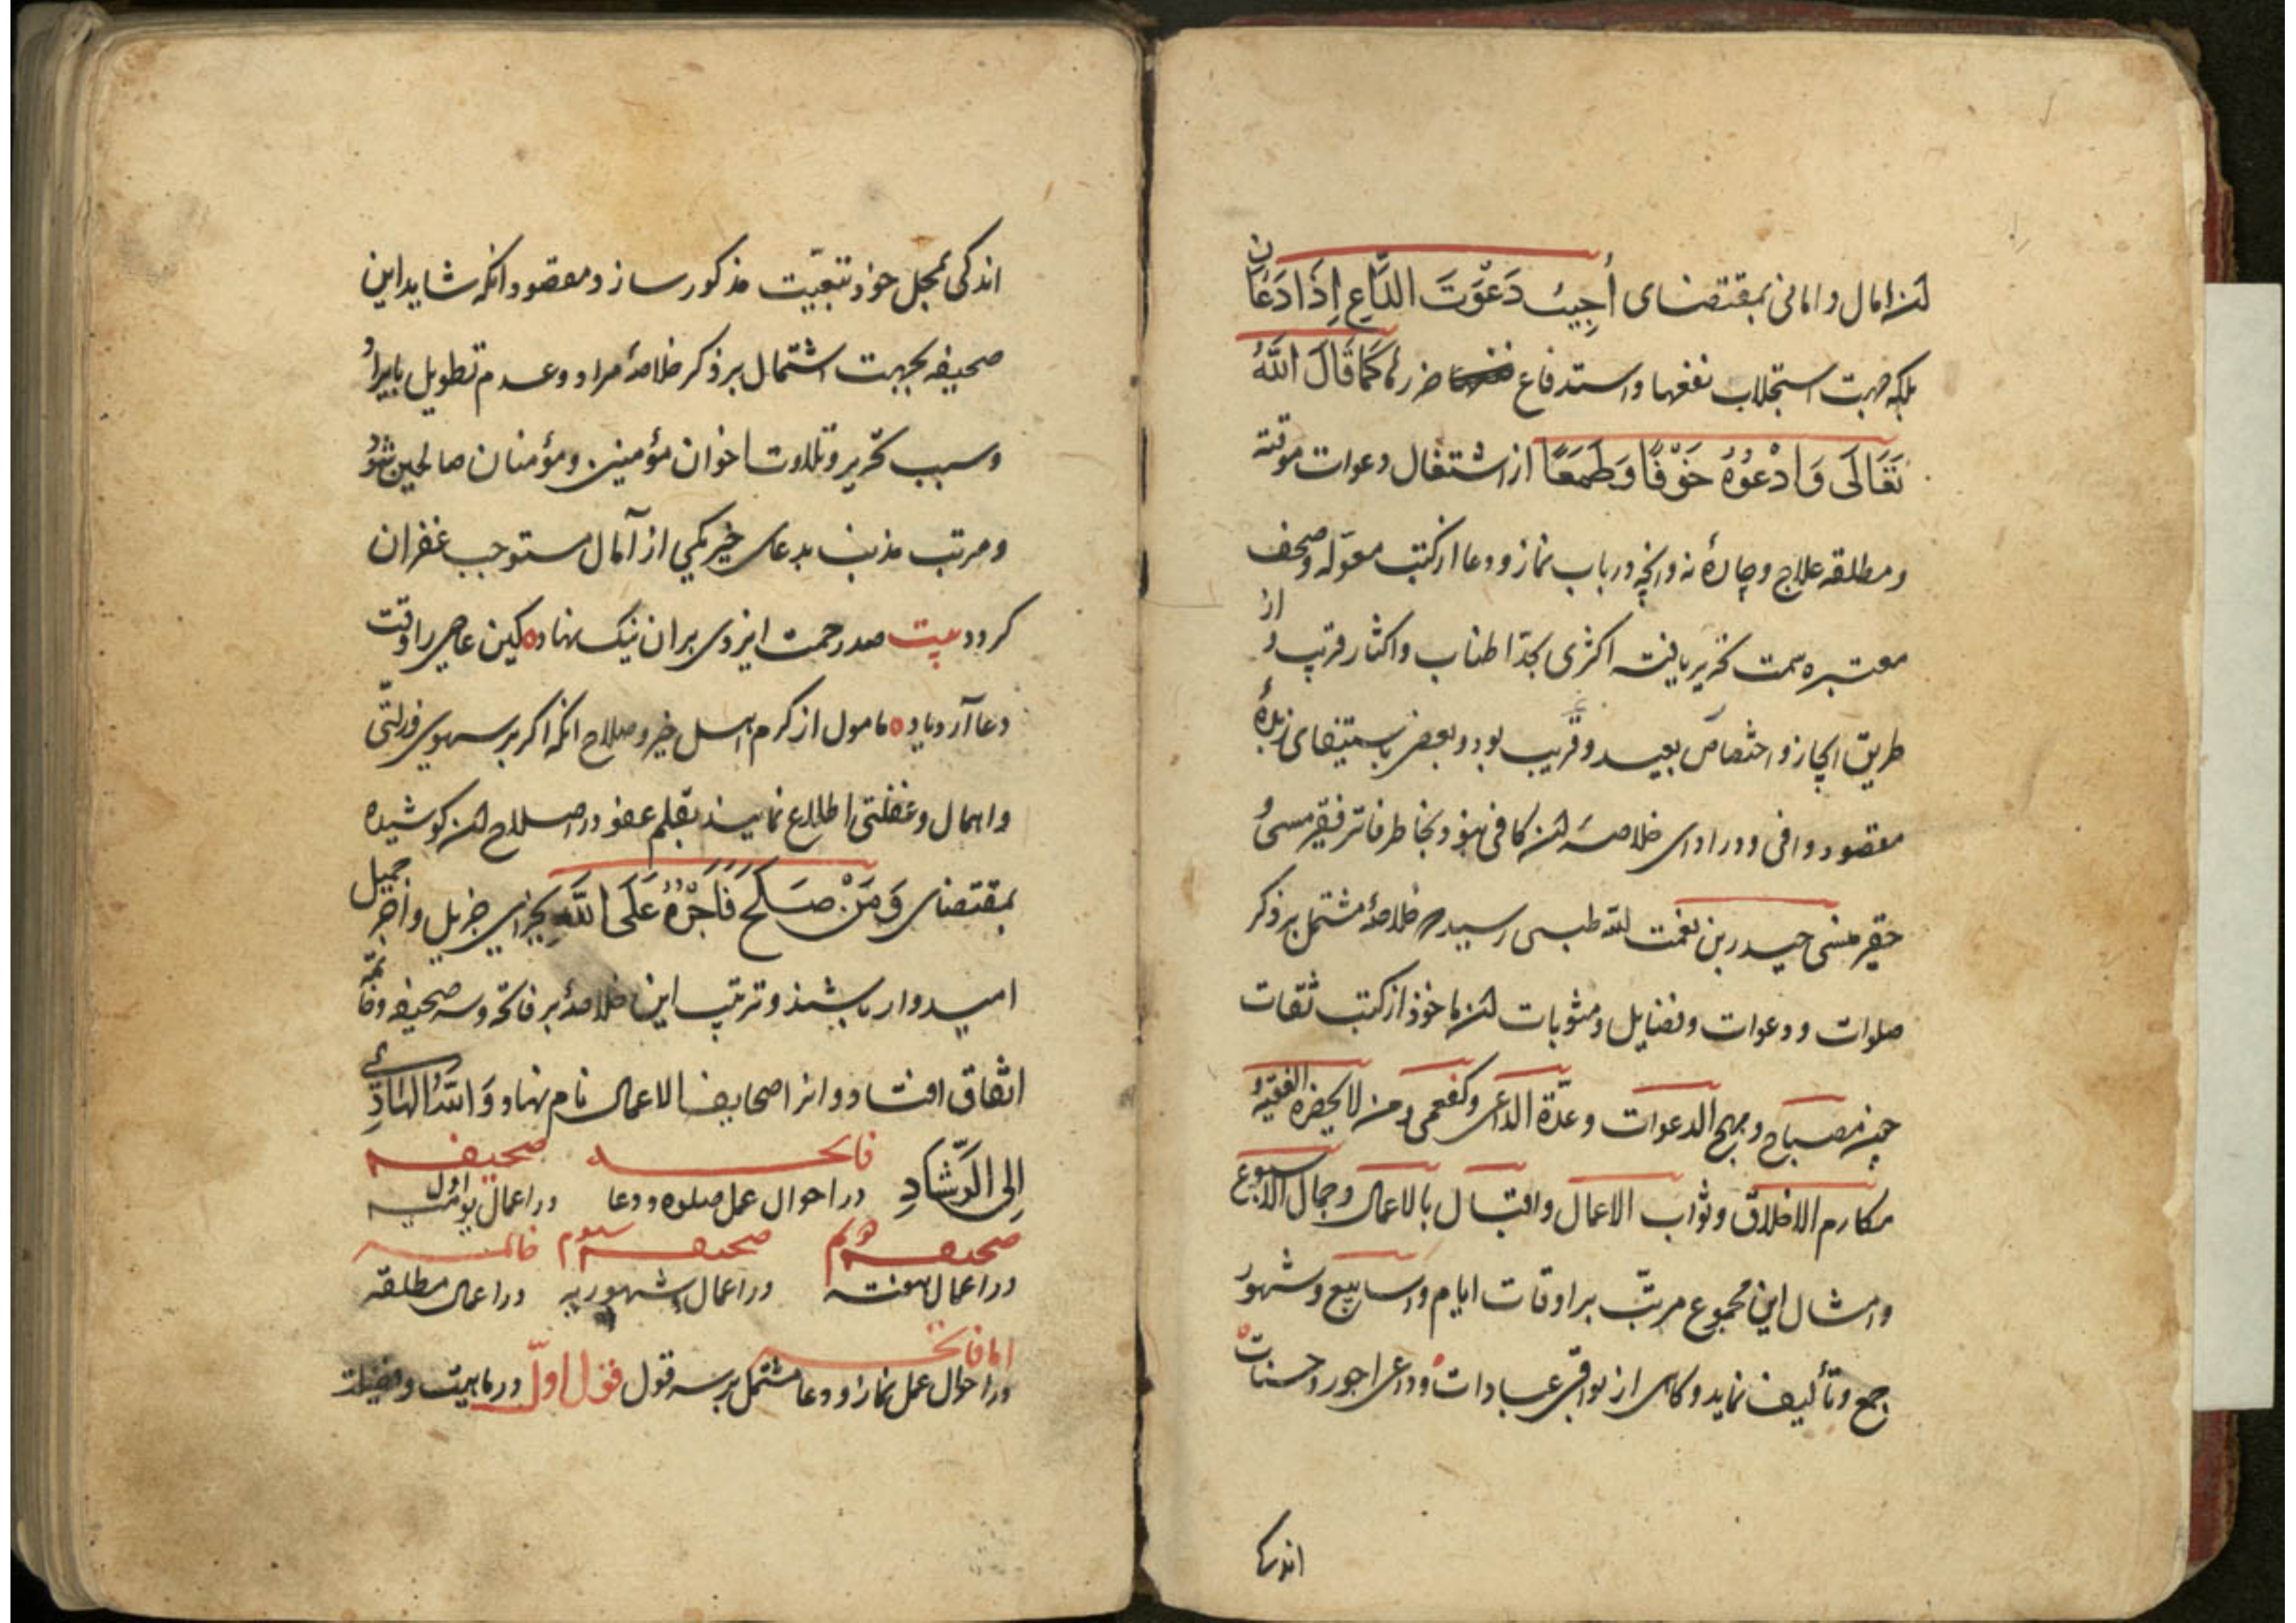 امال و امانی بمقتضای أُجِیبُ دَعْوَتَ الدَّاعِ إِذَا دَعَانِ
بلکه جهت استجلاب نفعها و استدفاع ضررها کَمَا قَالَ اللّٰهُ
تَعَالَی وَادْعُوهُ خَوْفًا وَطَمَعًا از اشتغال دعوات موقته
و مطلقه علاج و چارهٔ نه و انچه در باب نماز و دعا از کتب معوّله و صحف
معتبره سمت تحریر یافته اکثری بحدّ اطناب و اکثار قریب و از
طریق ایجاز و اختصاص بعید و قریب بود و بعضی باستیفای زبدهٔ
مقصود وافی و در ادای خلاصهٔ ان کافی نبود بخاطر فاتر فقیر
حقیر حیدر بن نعمت الله طبسی رسید خلاصهٔ مشتمل بر ذکر
صلوات و دعوات و فضایل و مثوبات ان ماخوذ از کتب ثقات
چون مصباح و مهج الدعوات و عدّة الداعی و کفعمی و من لا یحضره الفقیه و
مکارم الاخلاق و ثواب الاعمال و اقبال بالاعمال و جمال الاسبوع
و امثال این مجموع مرتّب بر اوقات ایام و اسابیع و شهور
جمع و تألیف نماید و کاهی از بواقی عبادات و دواعی اجور و حسنات
اندکی
اندکی بمحل خود بتبعیّت مذکور سازد و مقصود انکه شاید این
صحیفه بجهت اشتمال بر ذکر خلاصهٔ مراد و عدم تطویل بایراد
و سبب تحریر و تلاوت اخوان مؤمنین و مؤمنان صالحین شود
و مرتب مذنب بدعای خیر یکی از آمال مستوجب غفران
کردد بیت صد رحمت ایزدی بران نیک نهاد ه کین عاصی را وقت
دعا آرد یاد ه مامول از کرم اهل خیر و صلاح انکه اکر بر سهوی و زلّتی
و اهمال و غفلتی اطلاع نمایند بقلم عفو در اصلاح ان کوشیده
بمقتضای وَمَنْ صَلَحَ فَأَجْرُهُ عَلَی اللّٰهِ بجزای جزیل و اجر جمیل
امیدوار باشند و ترتیب این خلاصهٔ بر فاتحه و سه صحیفه و خاتمه
اتفاق افتاد و انرا صحایف الاعمال نام نهاد وَاللّٰهُ الهَادِي
إِلَی الرَّشَادِ فاتحه در احوال عمل صلوة و دعا صحیفه اول در اعمال یومیه
صحیفه دوم در اعمال هفته صحیفه سیوم در اعمال شهوریه خاتمه در اعمال مطلقه
اما فاتحه در احوال عمل نماز و دعا مشتمل بر سه قول قول اوّل در ماهیت و فضیلت